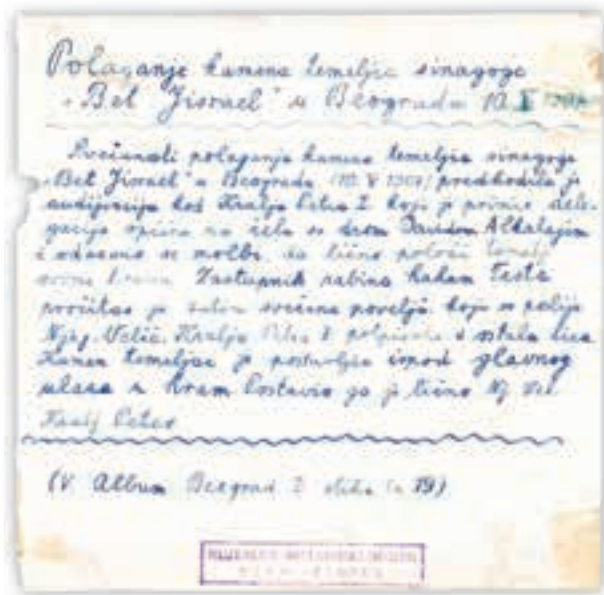 Polaganje kamena temeljca sinagoge
"Bet Jisrael" u Beogradu 10. V 1907
Svečanosti polaganja kamena temeljca sinagoge
"Bet Jisrael" u Beogradu (10. V 1907) predhodila je
audijencija kod Kralja Petra I. koji je primio dele-
gaciju općine na čelu sa drom Davidom Alkalajem
i odazvao se molbi, da lično položi temelj
ovome hramu. Zastupnik rabina haham Testa
pročitao je zatim svečanu povelju, koju su poslije
Njeg. Velič. Kralja Petra I. potpisala i ostala lica.
Kamen temeljac je postavljen ispod glavnog
ulaza u hram. Postavio ga je lično Nj. Vel.
Kralj Petar
(V. Album Beograd I. slika 19)